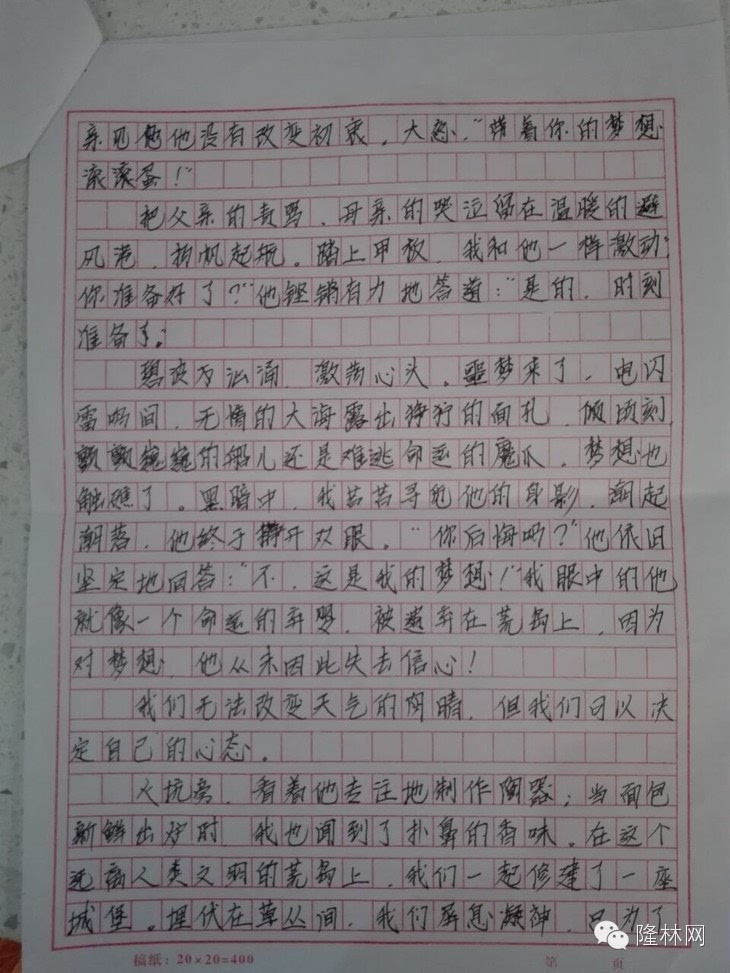 亲见他他没有改变初衷，大怒，“带着你的梦想
滚滚蛋！”
把父亲的责骂，母亲的哭泣留在温暖的避
风港，扬帆起航。踏上甲板，我和他一样激动：
你准备好了？”他铿锵有力地答道：“是的，时刻
准备了。
碧波万汹涌，激荡心头。噩梦来了，电闪
雷鸣间，无情的大海露出狰狞的面孔，倾顷刻，
颤颤巍巍的船儿还是难逃命运的魔爪。梦想也
触礁了。黑暗中，我苦苦寻觅他的身影，潮起
潮落，他终于睁开双眼。“你后悔吗？”他依旧
坚定地回答：“不，这是我的梦想！”我眼中的他
就像一个命运的弃婴，被遗弃在荒岛上，因为
对梦想，他从未因此失去信心！
我们无法改变天气的阴晴，但我们可以决
定自己的心态。
火坑旁，看着他专注地制作陶器；当面包
新鲜出炉时，我也闻到了扑鼻的香味。在这个
远离人类文明的荒岛上，我们一起修建了一座
城堡。埋伏在草丛间，我们屏息凝神，只为了
稿纸：20×20=400 第 页
隆林网